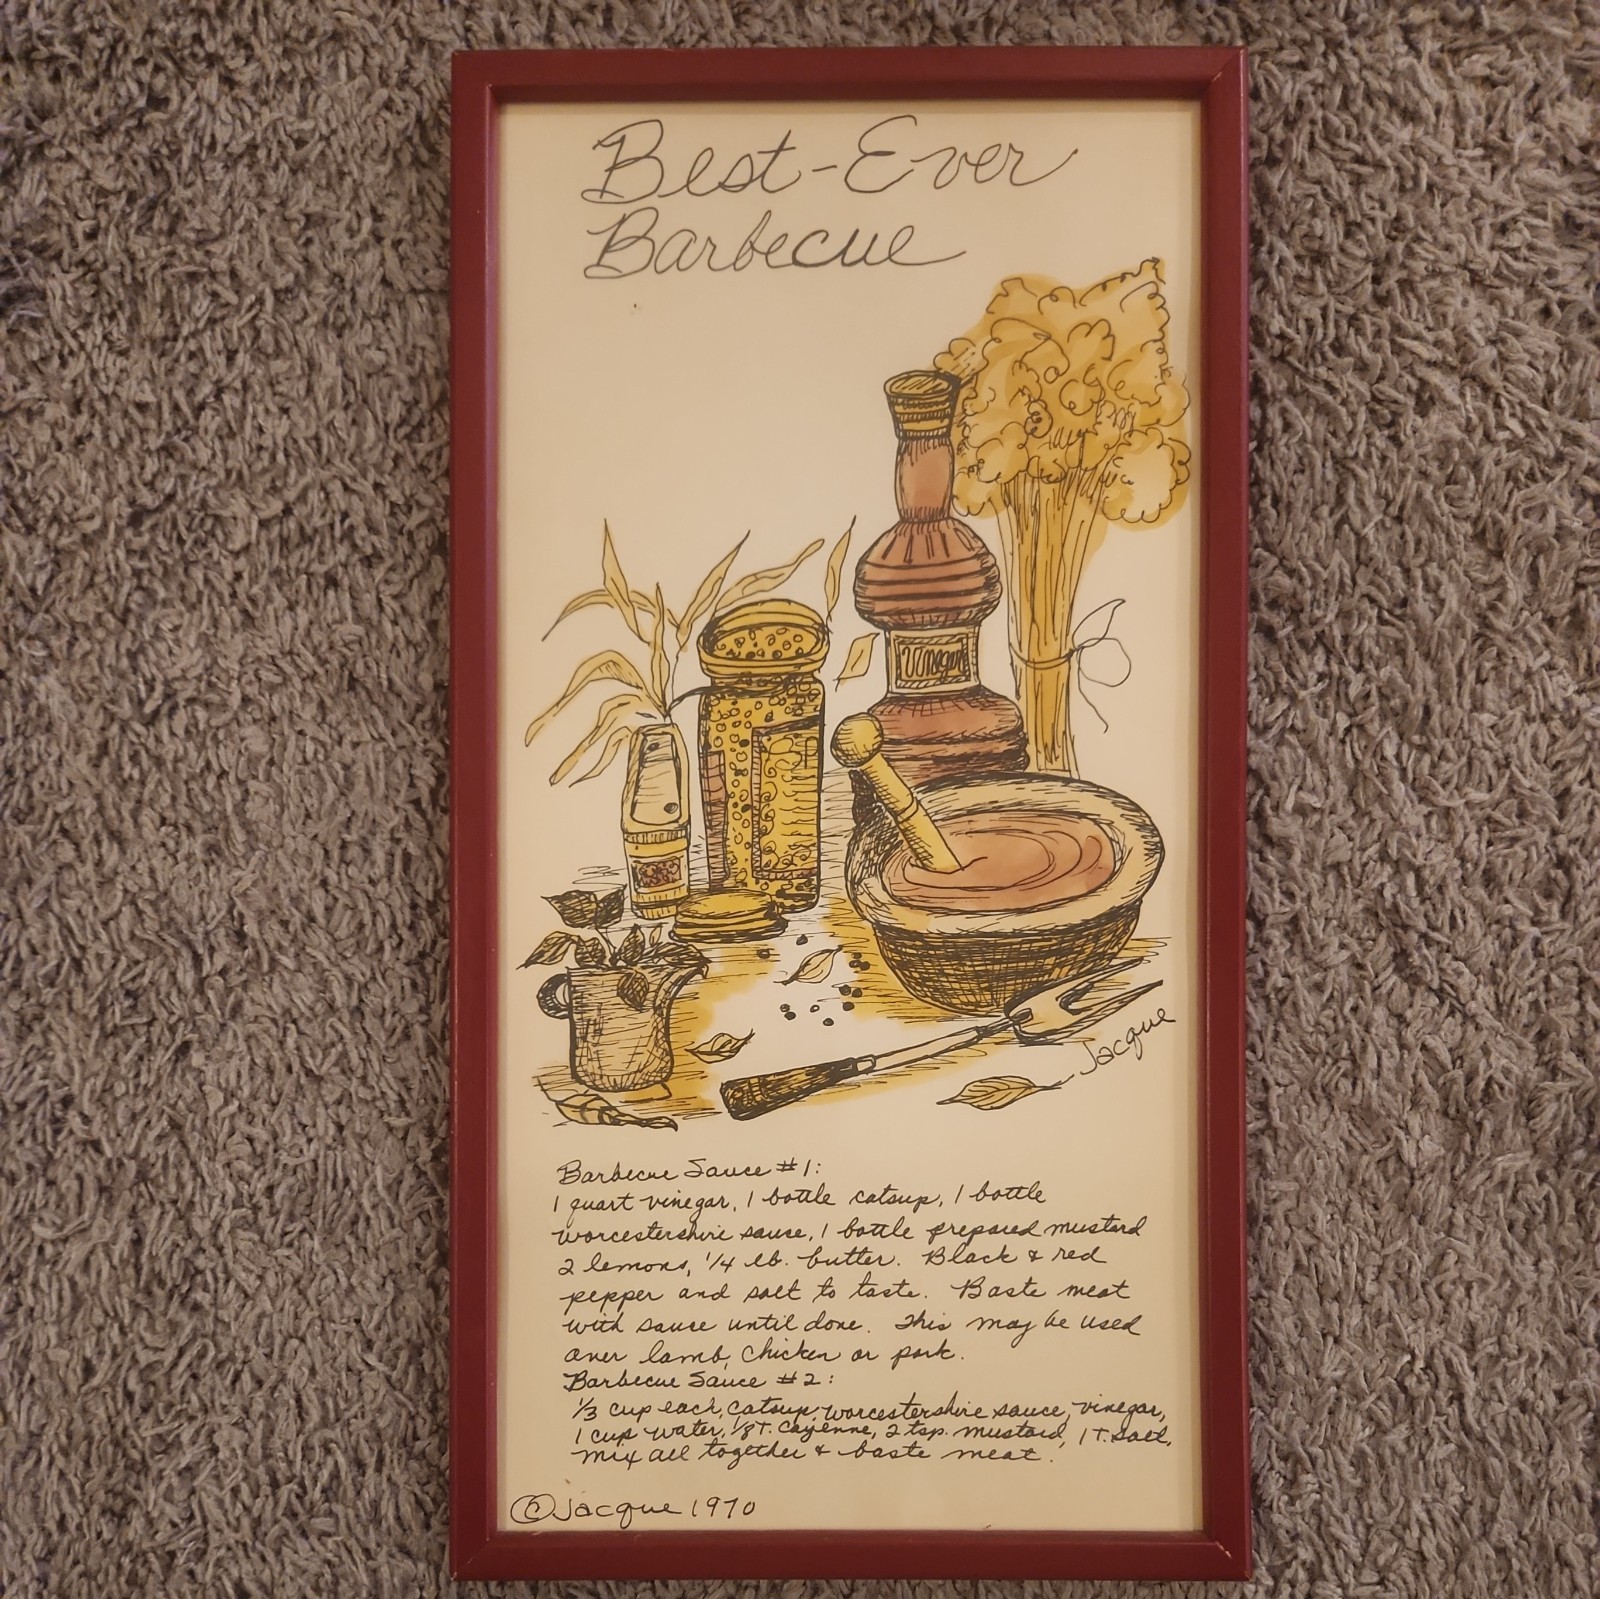 Best-Ever
Barbecue
Vinegar
Jacque
Barbecue Sauce #1:
1 quart vinegar, 1 bottle catsup, 1 bottle
worcestershire sauce, 1 bottle prepared mustard
2 lemons, 1/4 lb. butter. Black & red
pepper and salt to taste. Baste meat
with sauce until done. This may be used
over lamb, chicken or pork.
Barbecue Sauce #2:
1/3 cup each, catsup, worcestershire sauce, vinegar,
1 cup water, 1/8 T. Cayenne, 2 tsp. mustard, 1 T. salt,
mix all together & baste meat.
© Jacque 1970